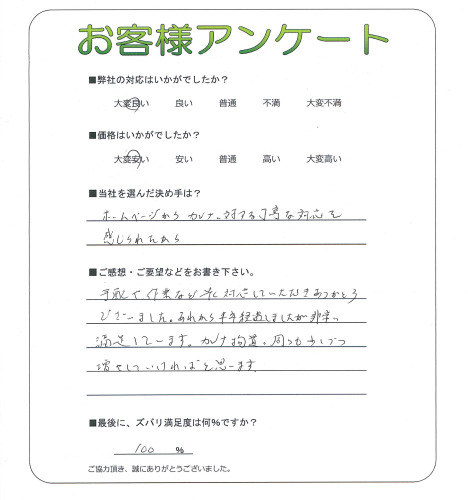 お客様アンケート
■弊社の対応はいかがでしたか？
大変良い 良い 普通 不満 大変不満
■価格はいかがでしたか？
大変安い 安い 普通 高い 大変高い
■当社を選んだ決め手は？
ホームページから 対する丁寧な対応を
感じられたから
■ご感想・ご要望などをお書き下さい。
作業など 対応していただきありがとう
ございました。あれから半年経過しましたが非常に
満足しています。 少しづつ
増やしていければと思います
■最後に、ズバリ満足度は何%ですか？
100 %
ご協力頂き、誠にありがとうございました。